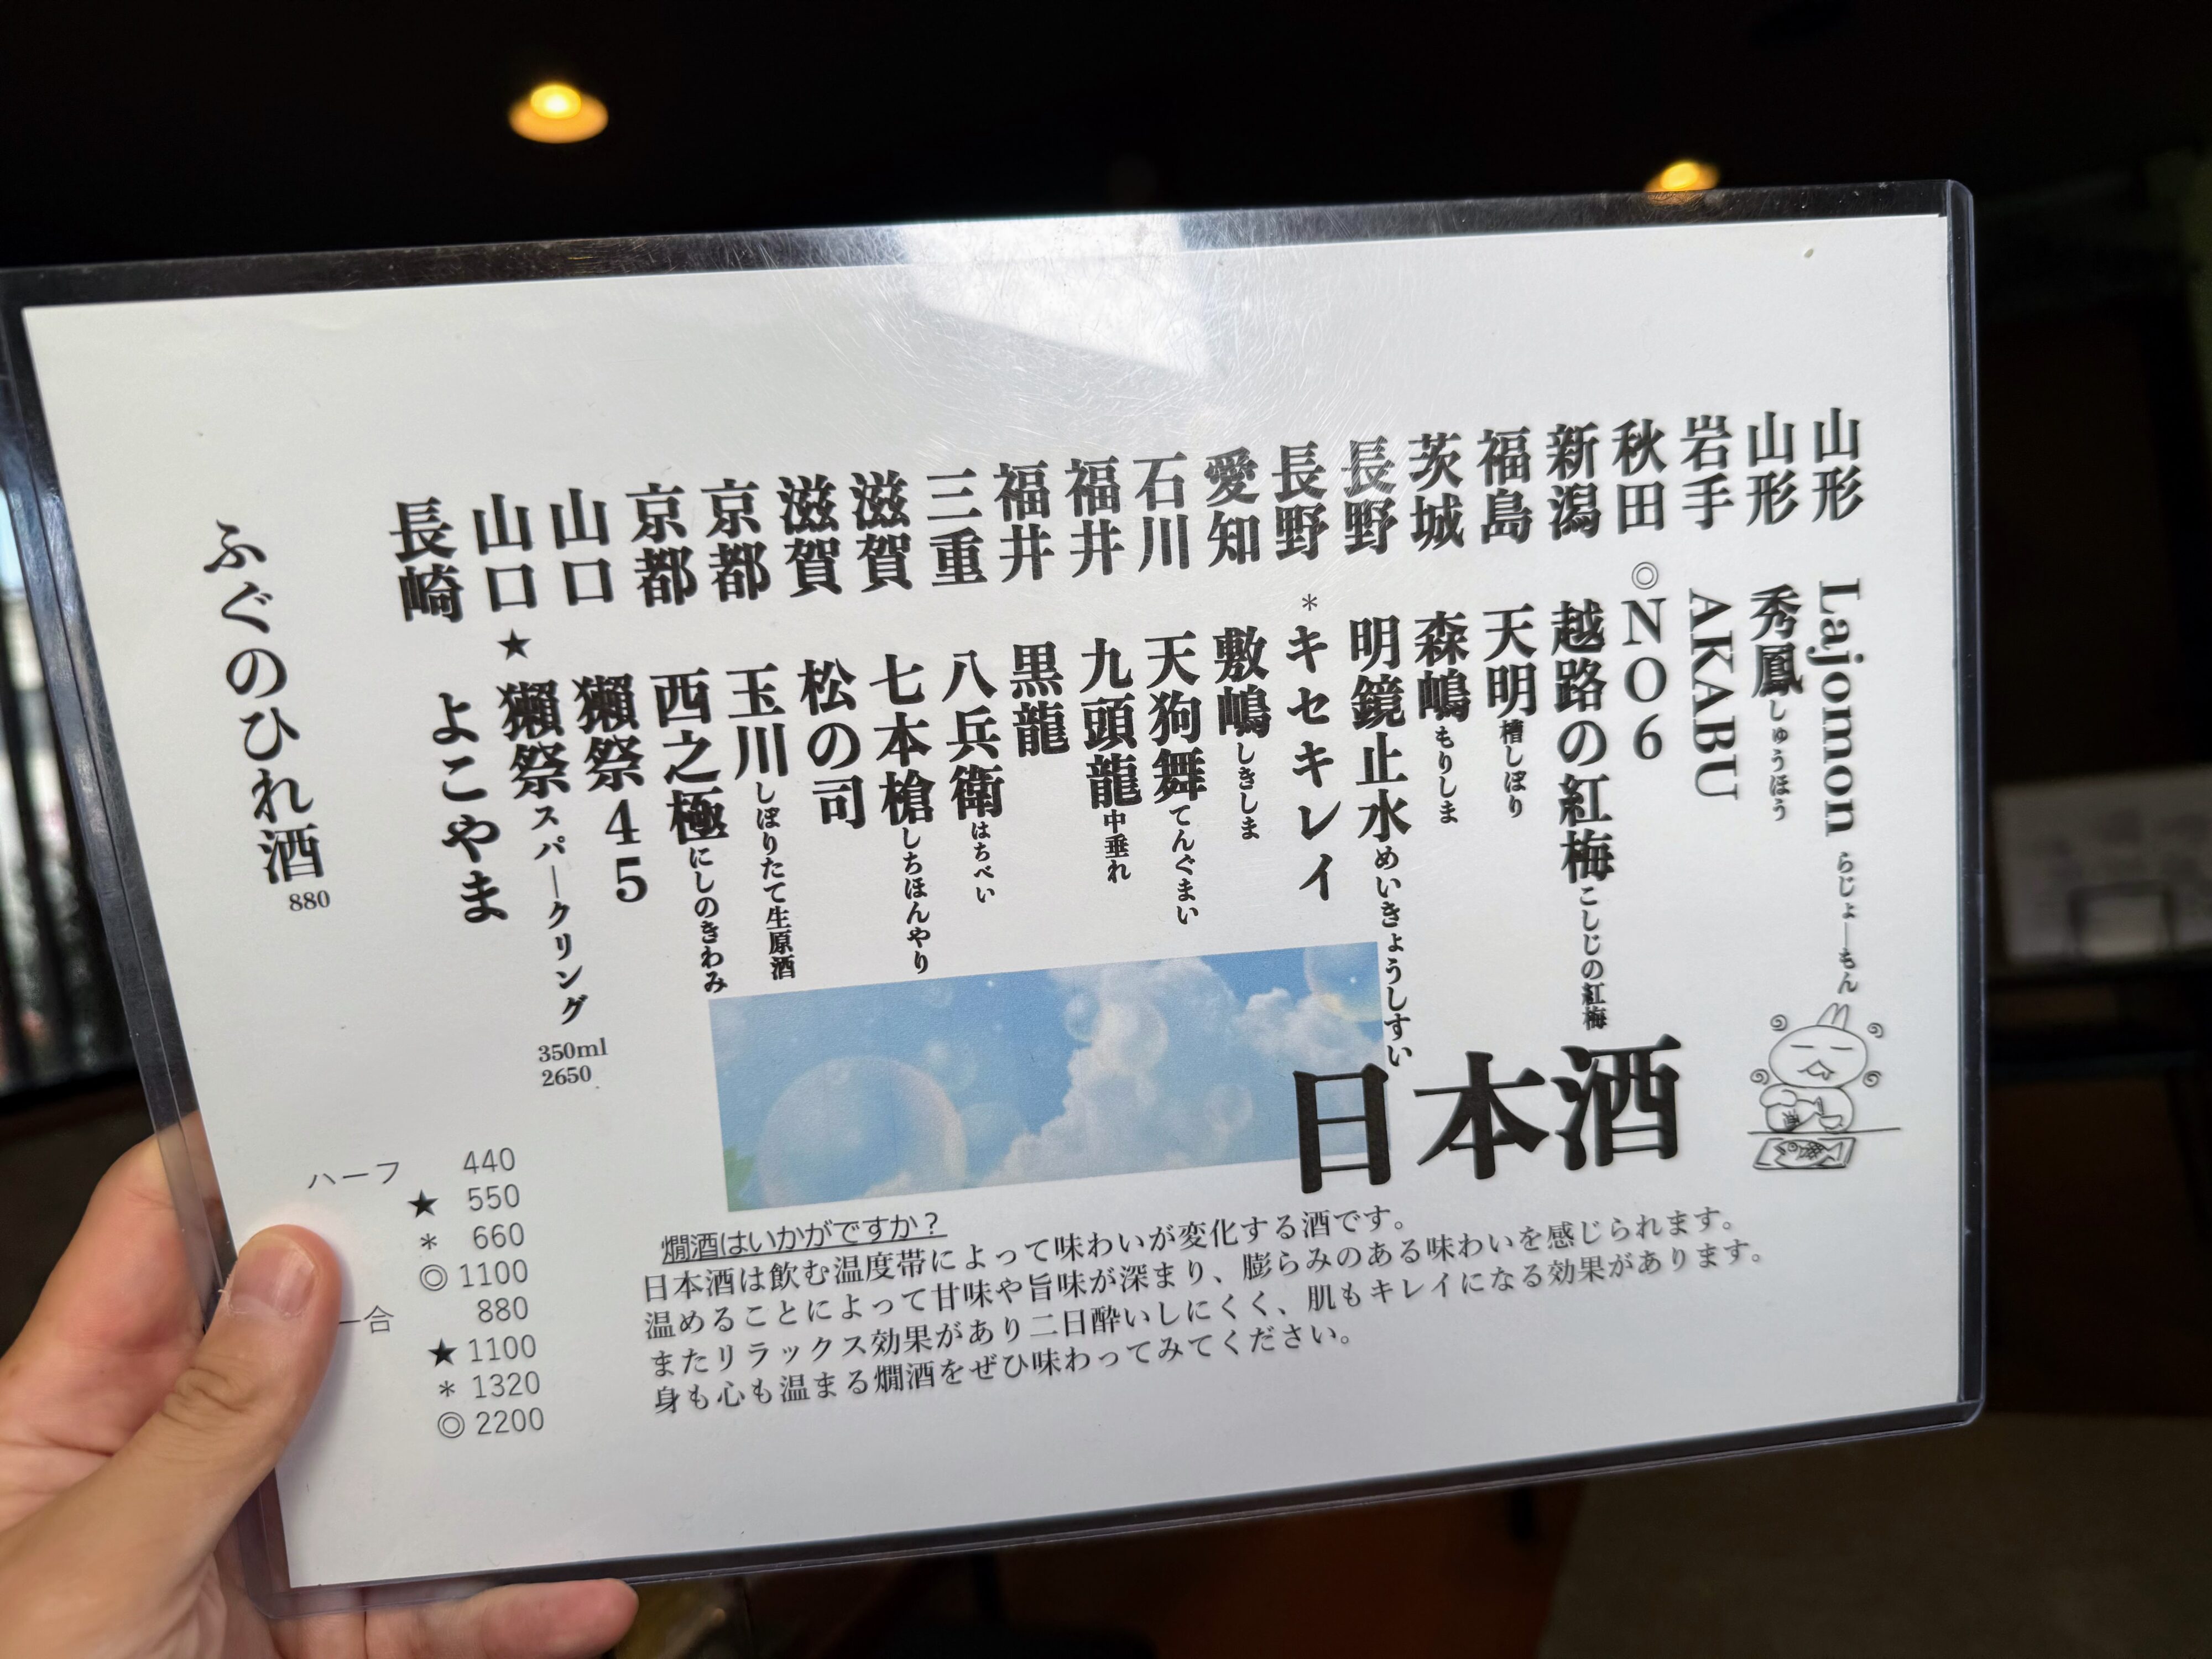 山形 Lajomon らじょーもん
山形 秀鳳 しゅうほう
岩手 AKABU
秋田 ◎NO6
新潟 越路の紅梅 こしじの紅梅
福島 天明 槽しぼり
茨城 森嶋 もりしま
長野 明鏡止水 めいきょうしすい
長野 *キセキレイ
愛知 敷嶋 しきしま
石川 天狗舞 てんぐまい
福井 九頭龍 中垂れ
福井 黒龍
三重 八兵衛 はちべい
滋賀 七本槍 しちほんやり
滋賀 松の司
京都 玉川 しぼりたて生原酒
京都 西之極 にしのきわみ
山口 獺祭45
山口 ★ 獺祭 スパークリング
350ml
2650
長崎 よこやま
ふぐのひれ酒 880
日本酒
酒
ハーフ 440
★ 550
* 660
◎ 1100
一合 880
★ 1100
* 1320
◎ 2200
燗酒はいかがですか？
日本酒は飲む温度帯によって味わいが変化する酒です。
温めることによって甘味や旨味が深まり、膨らみのある味わいを感じられます。
またリラックス効果があり二日酔いしにくく、肌もキレイになる効果があります。
身も心も温まる燗酒をぜひ味わってみてください。